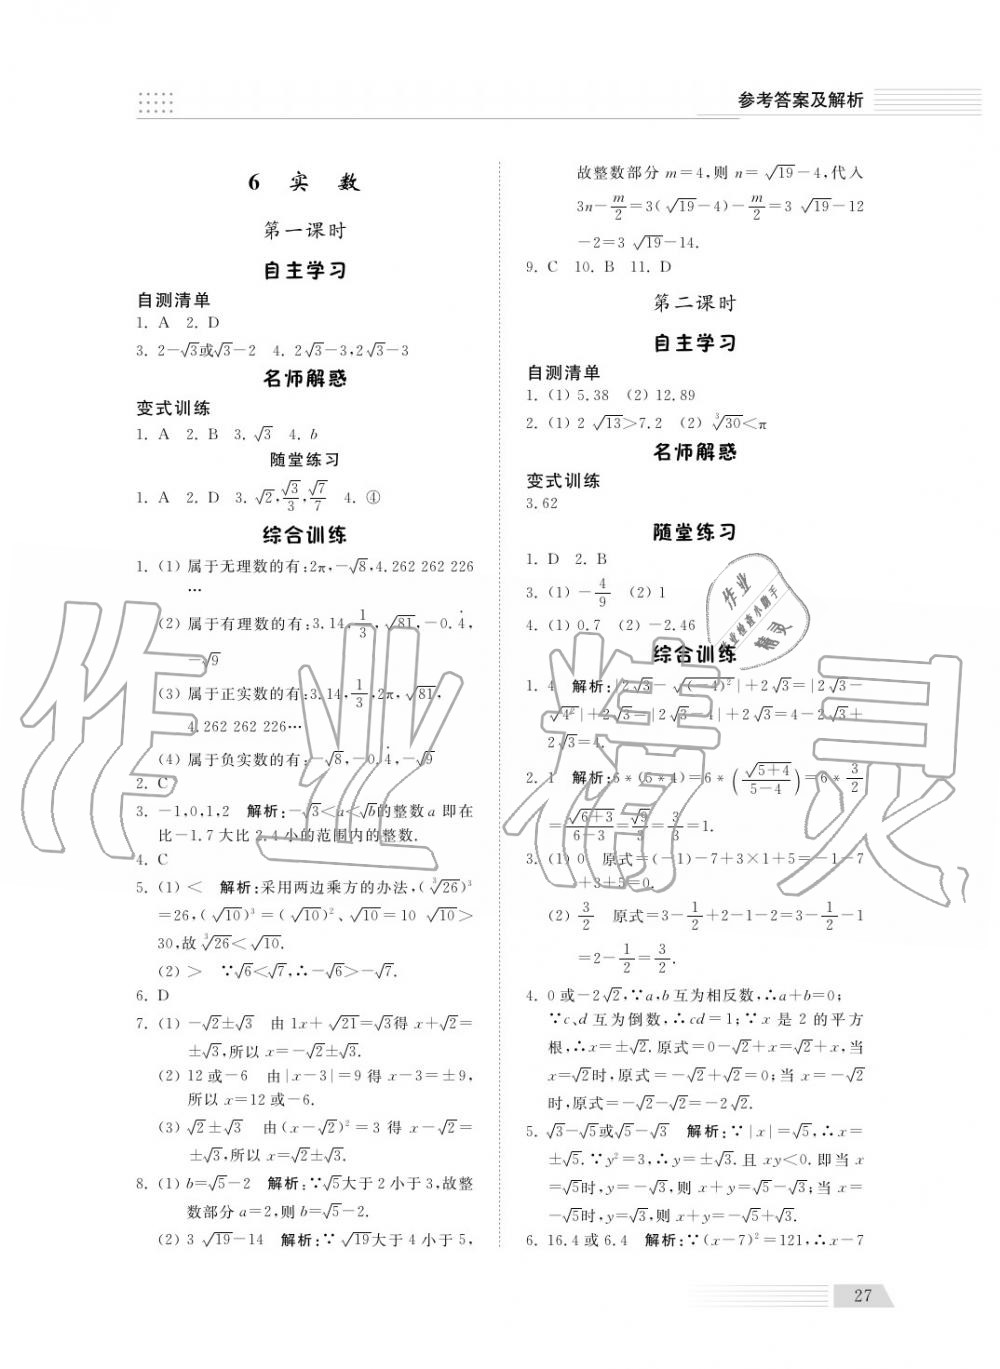 参考答案及解析
6 实 数
第一课时
自主学习
自测清单
1. A 2. D
3. 2-√3或√3-2 4. 2√3-3,2√3-3
名师解惑
变式训练
1. A 2. B 3. √3 4. b
随堂练习
1. A 2. D 3. √2,√3/3,√7/7 4. ④
综合训练
1. (1) 属于无理数的有:2π,-√8,4.262 262 226
…
(2) 属于有理数的有:3.14,1/3,√81,-0.4̇,
-√9
(3) 属于正实数的有:3.14,1/3,2π,√81,
4.262 262 226…
(4) 属于负实数的有:-√8,-0.4̇,-√9
2. C
3. -1,0,1,2 解析:-√3<a<√b的整数a 即在
比-1.7大比2.4小的范围内的整数.
4. C
5. (1) < 解析:采用两边乘方的办法,(∛26)³
=26,(√10)³=(√10)²、√10=10 √10>
30,故∛26<√10.
(2) > ∵√6<√7,∴-√6>-√7.
6. D
7. (1) -√2±√3 由1x+√21=√3得x+√2=
±√3,所以x=-√2±√3.
(2) 12或-6 由|x-3|=9得x-3=±9,
所以x=12或-6.
(3) √2±√3 由(x-√2)²=3得x-√2=
±√3,所以x=√2±√3.
8. (1) b=√5-2 解析:∵√5大于2小于3,故整
数部分a=2,则b=√5-2.
(2) 3 √19-14 解析:∵√19大于4小于5,
故整数部分m=4,则n=√19-4,代入
3n-m/2=3(√19-4)-m/2=3 √19-12
-2=3 √19-14.
9. C 10. B 11. D
第二课时
自主学习
自测清单
1. (1) 5.38 (2) 12.89
2. (1) 2 √13>7.2 (2) ∛30<π
名师解惑
变式训练
3.62
随堂练习
1. D 2. B
3. (1) -4/9 (2) 1
4. (1) 0.7 (2) -2.46
综合训练
1. 4 解析:|2√3-√(-4)²|+2√3=|2√3-
√4²|+2√3=|2√3-4|+2√3=4-2√3+
2√3=4.
2. 1 解析:6*(5*4)=6*(√5+4/5-4)=6*3/2
=√6+3/6-3=√9/3=3/3=1.
3. (1) 0 原式=(-1)-7+3×1+5=-1-7
+3+5=0.
(2) 3/2 原式=3-1/2+2-1-2=3-1/2-1
=2-1/2=3/2.
4. 0或-2√2,∵a,b互为相反数,∴a+b=0;
∵c、d互为倒数,∴cd=1;∵x是2的平方
根,∴x=±√2.原式=0-√2+x=√2+x,当
x=√2时,原式=-√2+√2=0;当x=-√2
时,原式=-√2-√2=-2√2.
5. √3-√5或√5-√3 解析:∵|x|=√5,∴x=
±√5.∵y²=3,∴y=±√3.且xy<0.即当x
=√5时,y=-√3,则x+y=√5-√3;当x=
-√5时,y=√3,则x+y=-√5+√3.
6. 16.4或6.4 解析:∵(x-7)²=121,∴x-7
27
作业精灵
作业
作业检查小助手
精灵